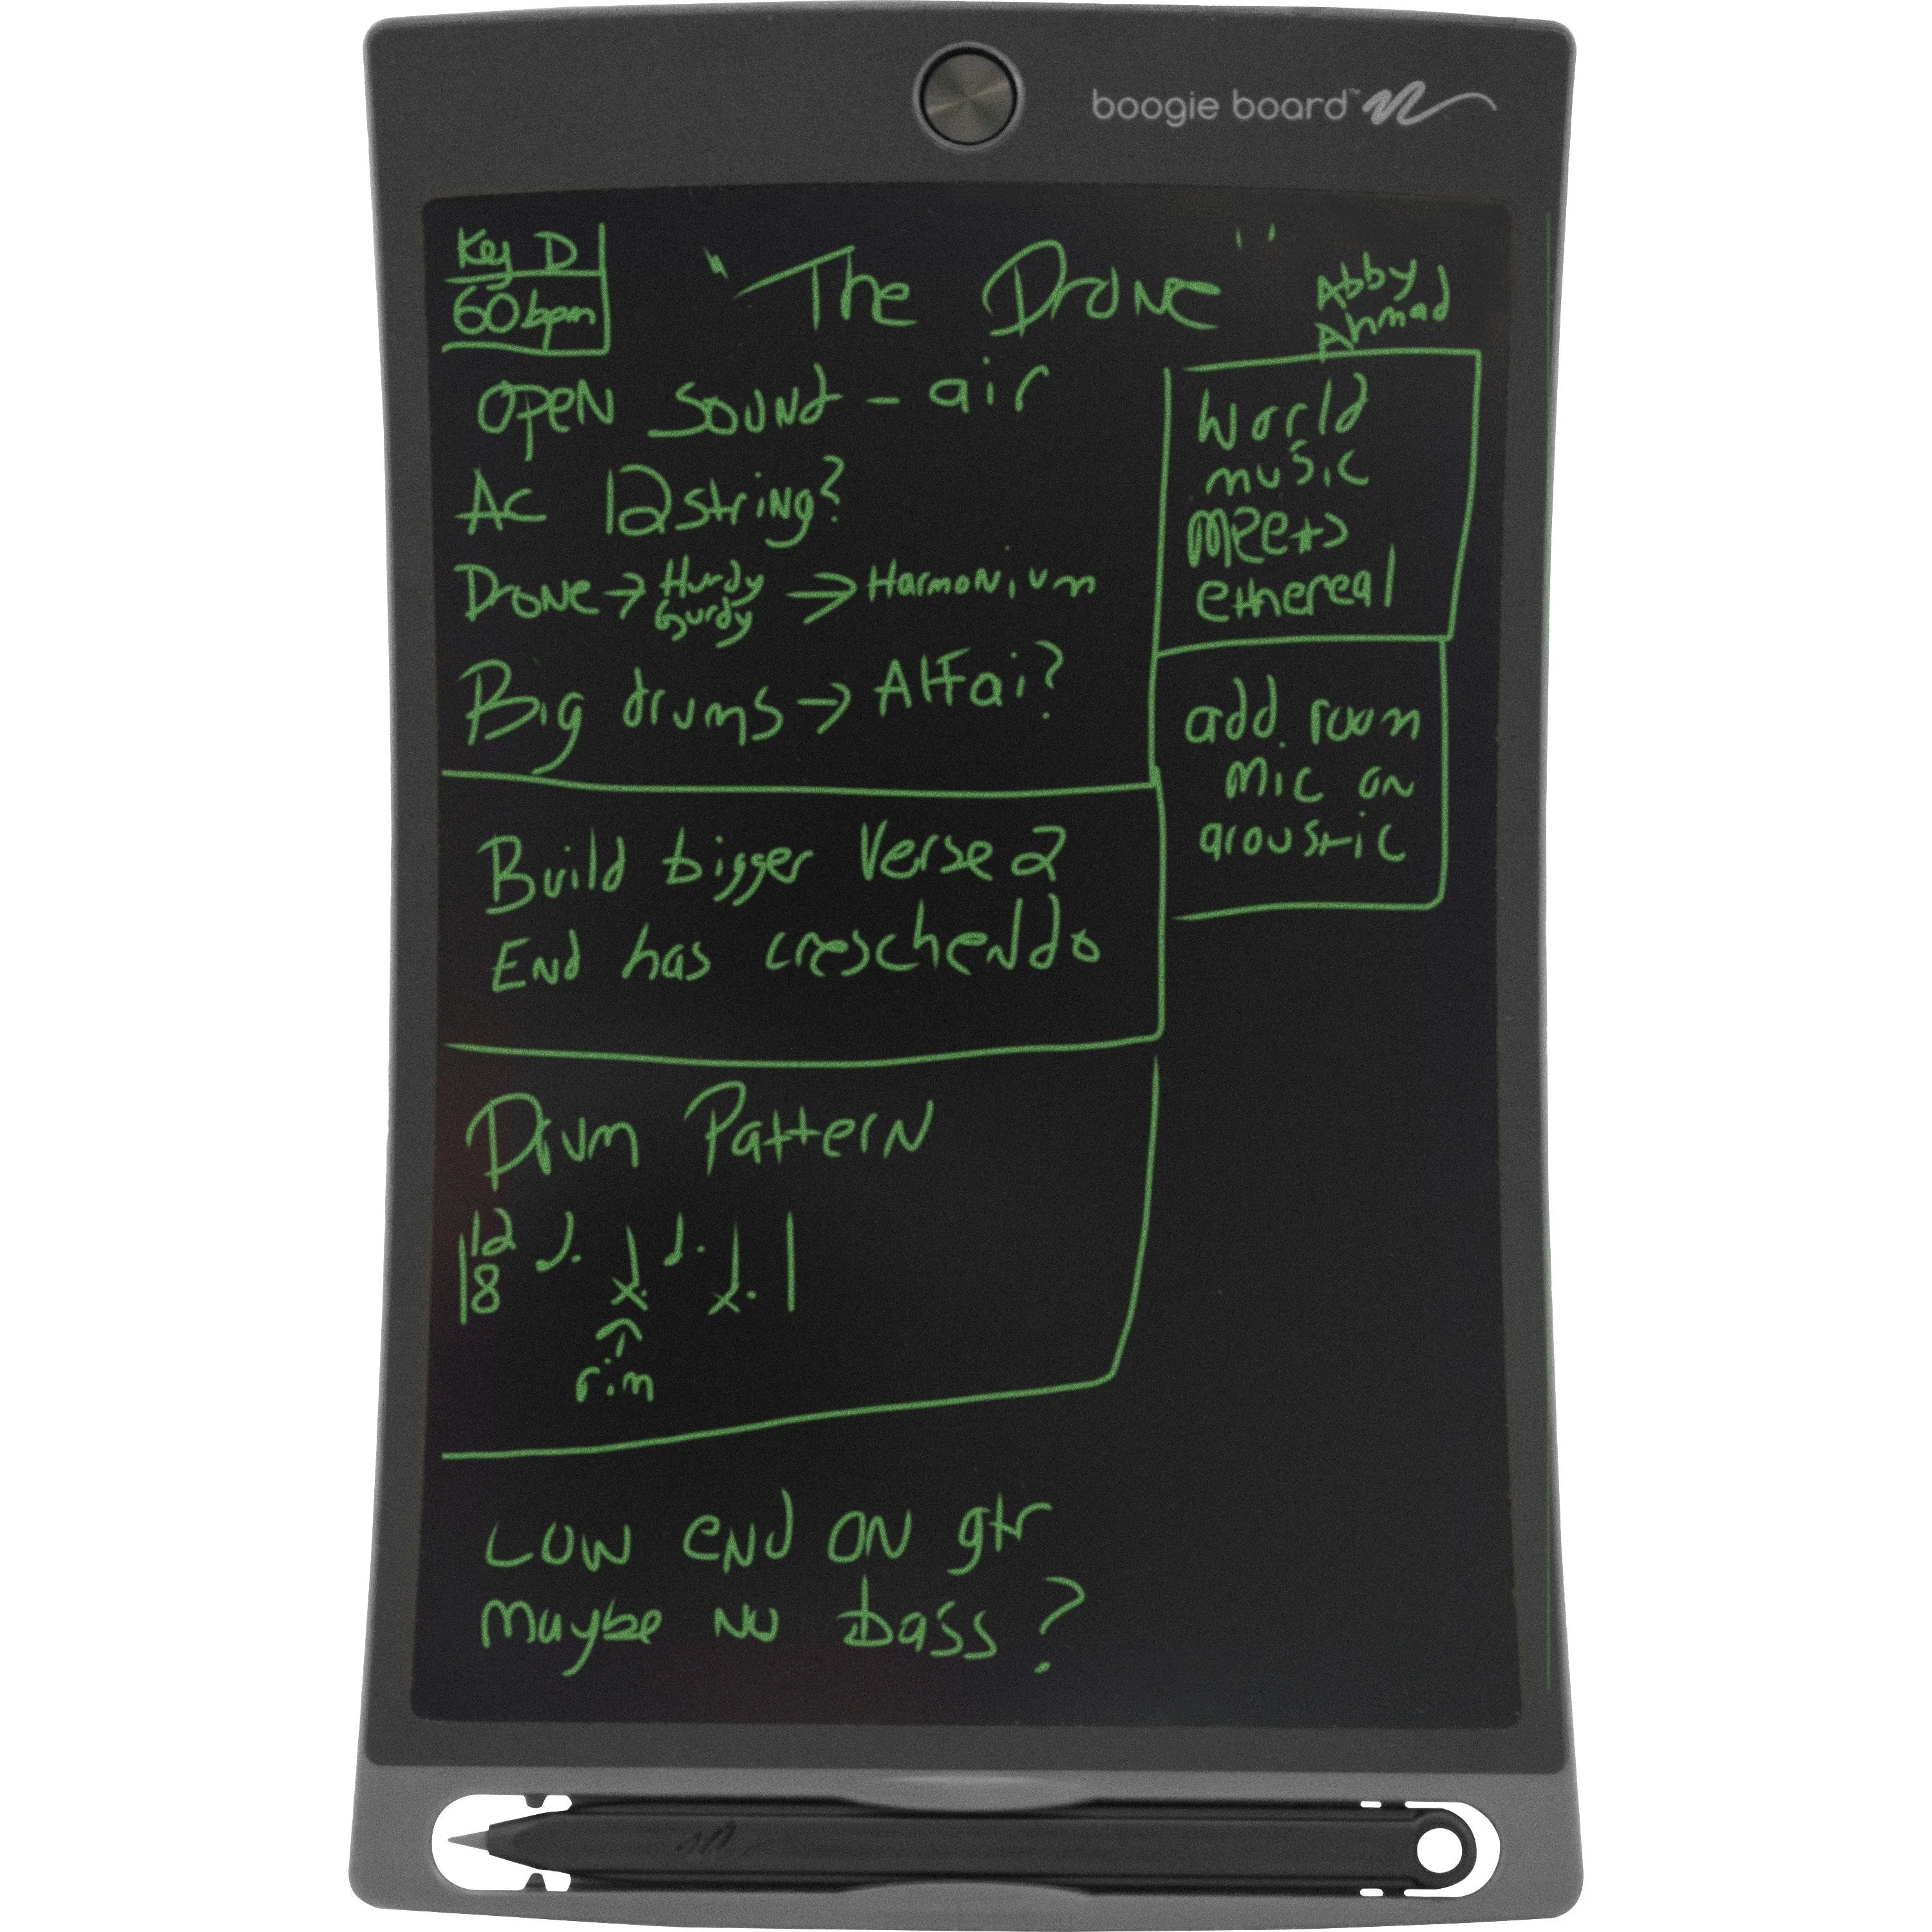 boogie board™
Key D
60 bpm
"The Drone"
Abby
Ahmad
OPEN SOUNd - air
AC 12 striNg?
DroNe → Hurdy Gurdy → HarmoNium
Big drums → AlFai?
World
music
Meets
ethereal
add room
Mic on
acoustic
Build bigger Verse 2
ENd has creschenddo
Drum PatterN
12
8
rim
LOW eNd ON gtr
Maybe No bass?